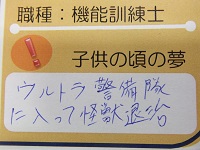 職種：機能訓練士
子供の頃の夢
ウルトラ警備隊
に入って怪獣退治